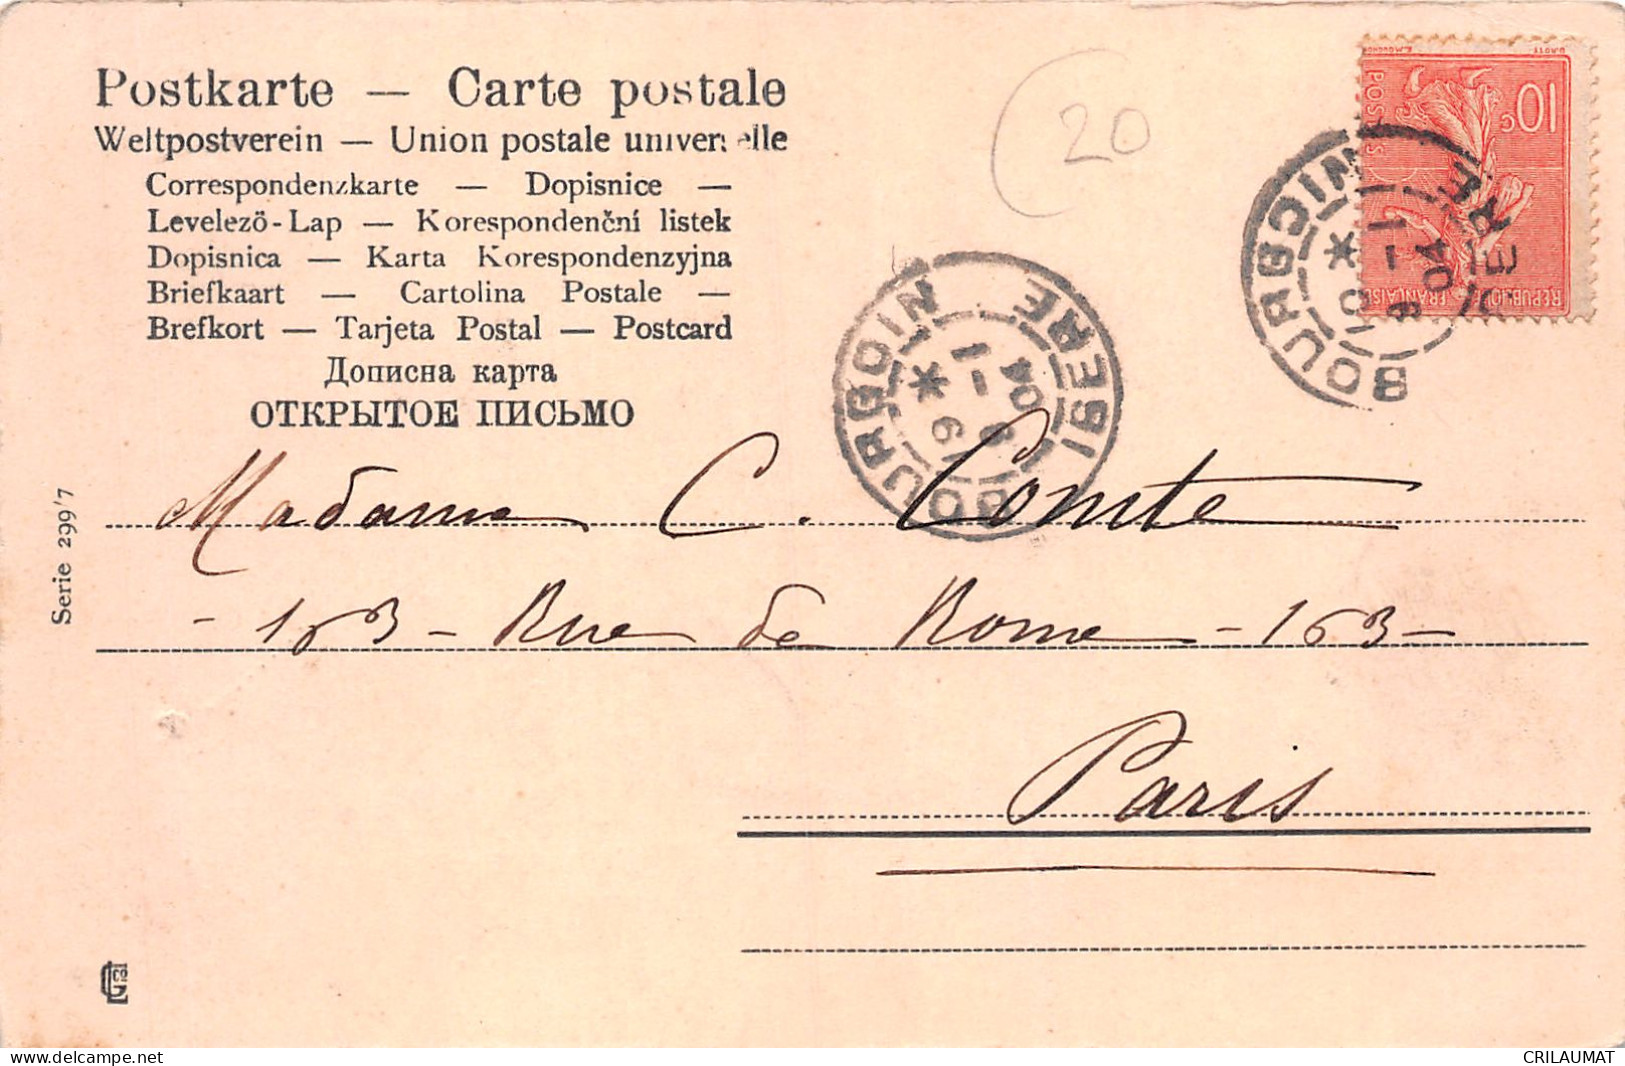 Postkarte — Carte postale
Weltpostverein — Union postale universelle
Correspondenzkarte — Dopisnice —
Levelező-Lap — Korespondenční listek
Dopisnica — Karta Korespondenzyjna
Briefkaart — Cartolina Postale —
Brefkort — Tarjeta Postal — Postcard
Дописна карта
ОТКРЫТОЕ ПИСЬМО
20
10c
POSTES
REPUBLIQUE FRANÇAISE
BOURGOIN
ISERE
1
04
BOURGOIN
ISERE
1
04
Madame C. Comte
- 163 - Rue de Rome - 163 -
Paris
Serie 299/7
CRILAUMAT